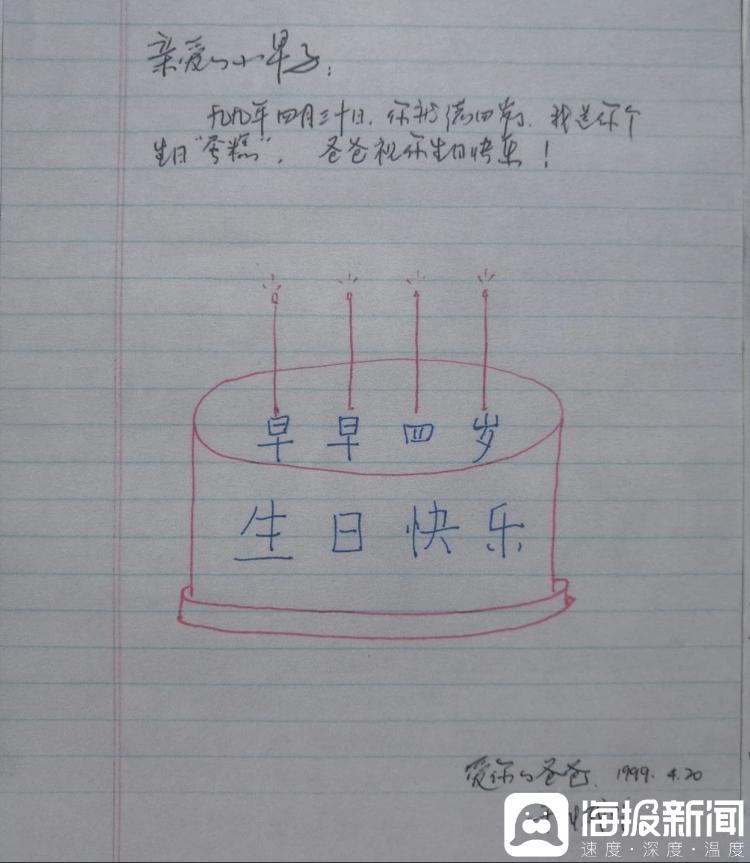 亲爱的小早子:
九九年四月二十日,你就满四岁了,我送你个
生日"蛋糕",爸爸祝你生日快乐!
早早四岁
生日快乐
爱你的爸爸 1999.4.20
海报新闻
速度·深度·温度